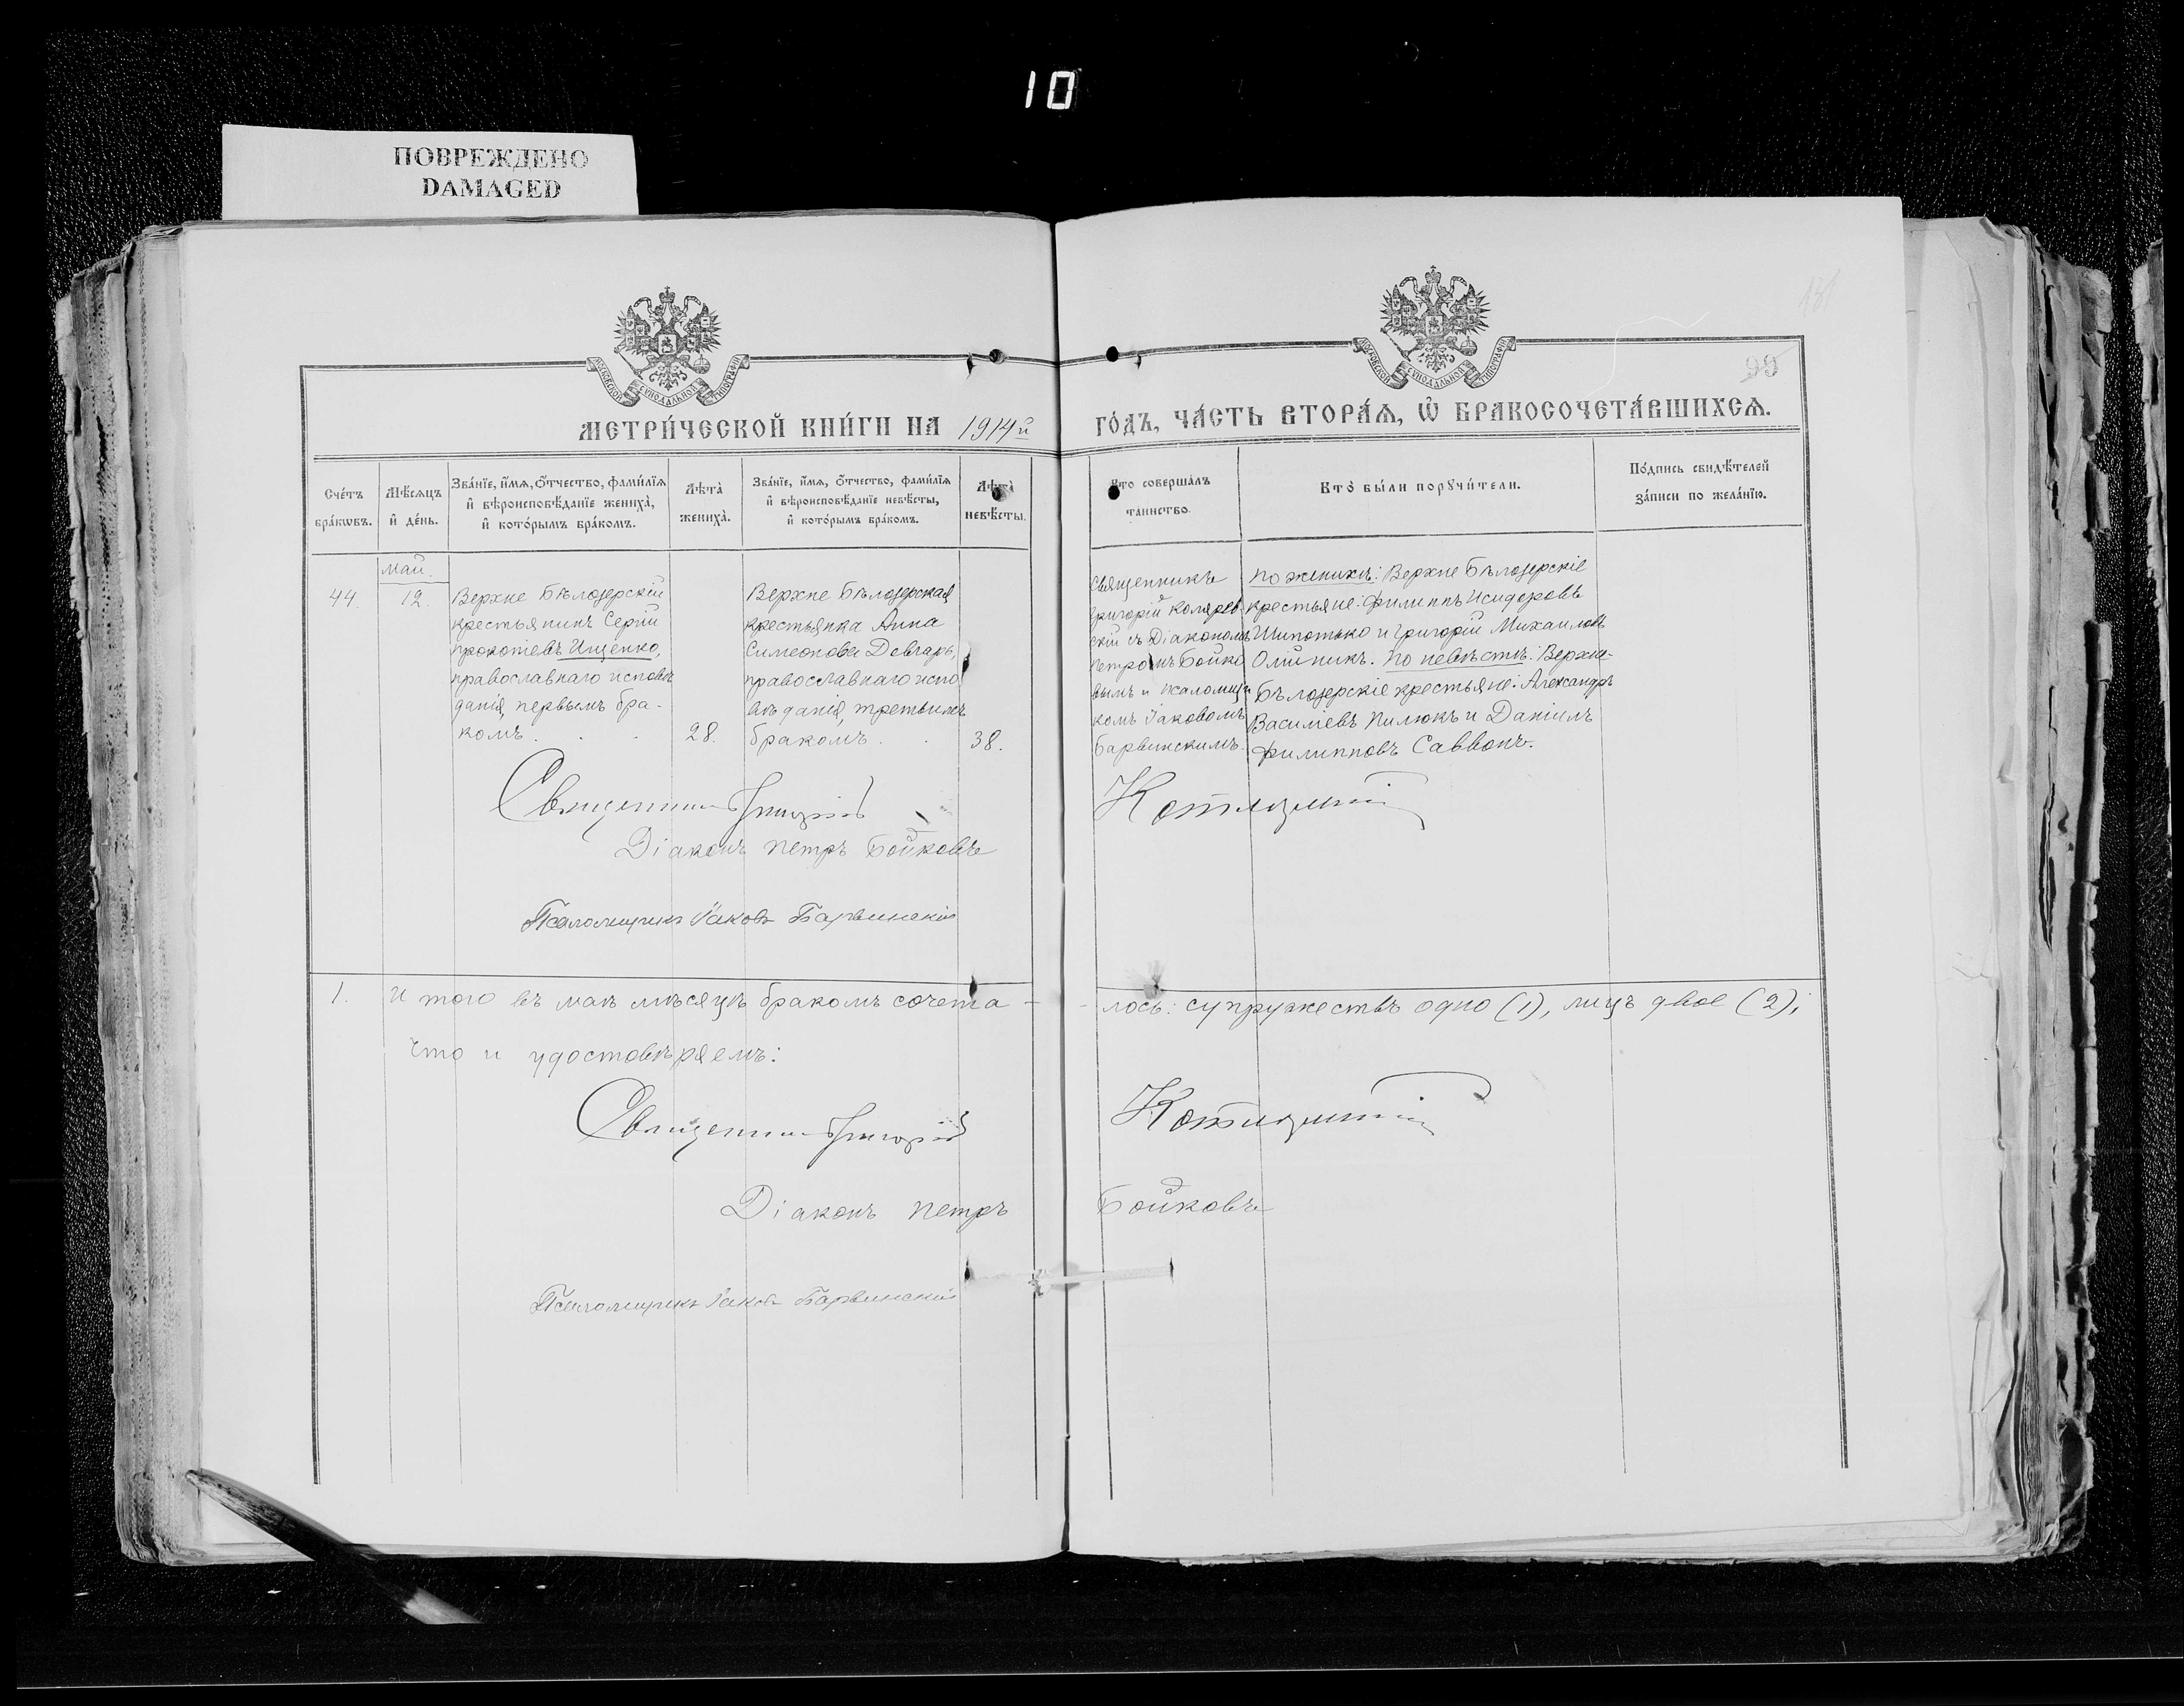 10
ПОВРЕЖДЕНО
DAMAGED
МОСКОВСКОЙ СѴНОДАЛЬНОЙ ТИПОГРАФІИ
МОСКОВСКОЙ СѴНОДАЛЬНОЙ ТИПОГРАФІИ
99
МЕТРИ́ЧЕСКОЙ КНИ́ГИ НА 1914й
ГО́ДЪ, ЧА́СТЬ ВТОРА́Ѧ, Ѽ БРАКОСОЧЕТА́ВШИХСѦ.
Сче́тъ
бра́кωвъ.
Мѣ́сѧцъ
и҆ де́нь.
Зва́нїе, и҆́мѧ, о҆́тчество, фами́лїѧ
и҆ вѣроисповѣ́данїе жениха̀,
и҆ кото́рымъ бра́комъ.
Лѣта̀
жениха̀.
Зва́нїе, и҆́мѧ, о҆́тчество, фами́лїѧ
и҆ вѣроисповѣ́данїе невѣ́сты,
и҆ кото́рымъ бра́комъ.
Лѣта̀
невѣ́сты.
Кто соверша́лъ
та́инство.
Кто̀ бы́ли порꙋчи́тели.
По́дпись свидѣ́телей
за́писи по жела́нїю.
Май.
44.
12.
Верхне Бѣлозерскій
крестьянинъ Сергій
Прокопіевъ Ищенко,
православнаго исповѣ
данія, первымъ бра-
комъ.
28.
Верхне Бѣлозерская
крестьянка Анна
Симеонова Довгарь,
православнаго испо
вѣданія, третьимъ
бракомъ.
38.
Священникъ
Григорій
скій съ Діакономъ
Петромъ Бойко
вымъ и псаломщи
комъ Іаковомъ
Барвинскимъ.
По женихѣ: Верхне Бѣлозерскіе
крестьяне: Филиппъ Исидоровъ
Шипотько и Григорій Михаиловъ
Олійникъ. По невѣстѣ: Верхне-
Бѣлозерскіе крестьяне: Александръ
Василіевъ Пилюкъ и Даніилъ
Филипповъ Саввонъ.
Священникъ Григорій
Діаконъ Петръ Бойковъ
Псаломщикъ Іаковъ Барвинскій
1. Итого въ маѣ мѣсяцѣ бракомъ сочета-
-лось: супружествъ одно (1), лицъ двое (2),
что и удостовѣряемъ:
Священникъ Григорій
Діаконъ Петръ Бойковъ
Псаломщикъ Іаковъ Барвинскій